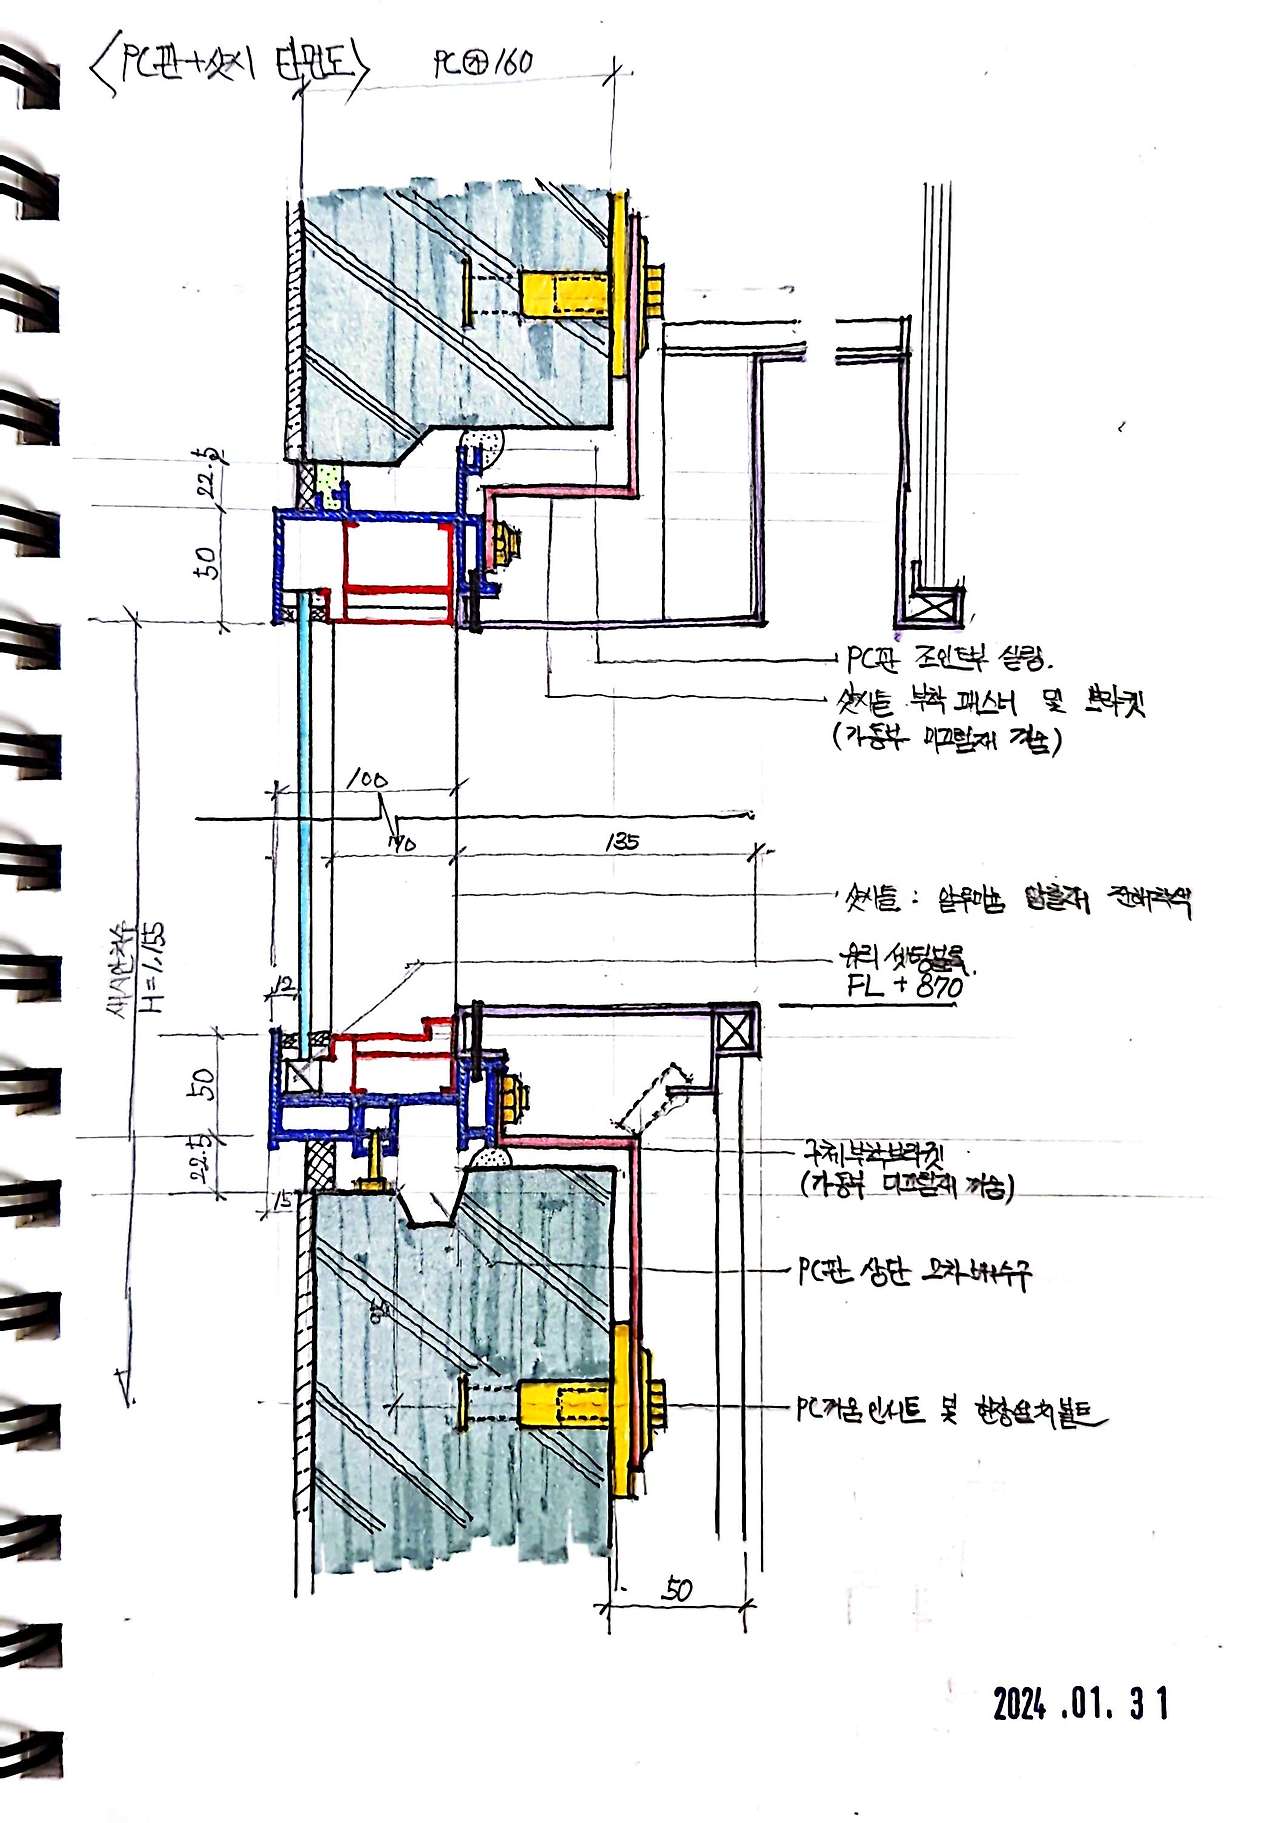 <PC판+샷시 단면도>
PC㊉160
22.5
50
PC판 조인트부 실링.
샷시틀 부착 패스너 및 브라켓
(가동부 미끄럼재 끼움)
100
70
135
샷시틀 : 알루미늄 압출재 전해착색
유리 셋팅블록.
FL + 870
새시안치수
H=1,155
12
50
22.5
15
구체부착브라켓
(가동부 미끄럼재 끼움)
PC판 상단 모자배수구
95
PC끼움인서트 및 현장설치볼트
50
2024.01.31